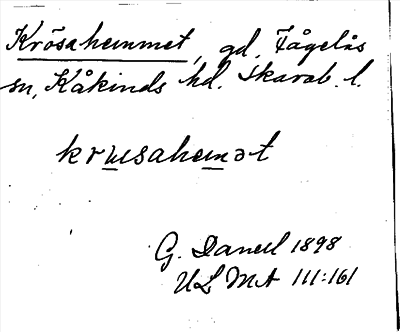 Krösahemmet, gd, Fågelås
sn, Kåkinds hd. Skarab. l.
krusahemət
G. Danell 1898
ULMA 111:161